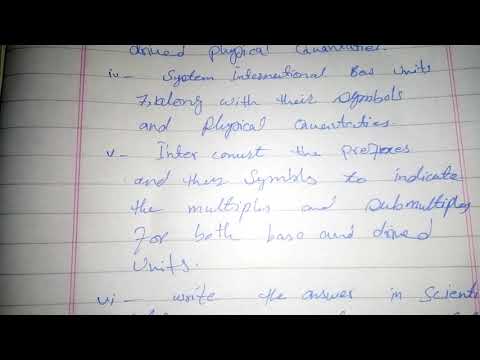 drived physical Quantities.
iv- System International Bas Units
7, along with their Symbols
and physical Quantities
v- Inter conust the prefixes
and their Symbls to indicate
the multiples and submultiples
for both base and drived
Units.
vi- write the answer in Scienti